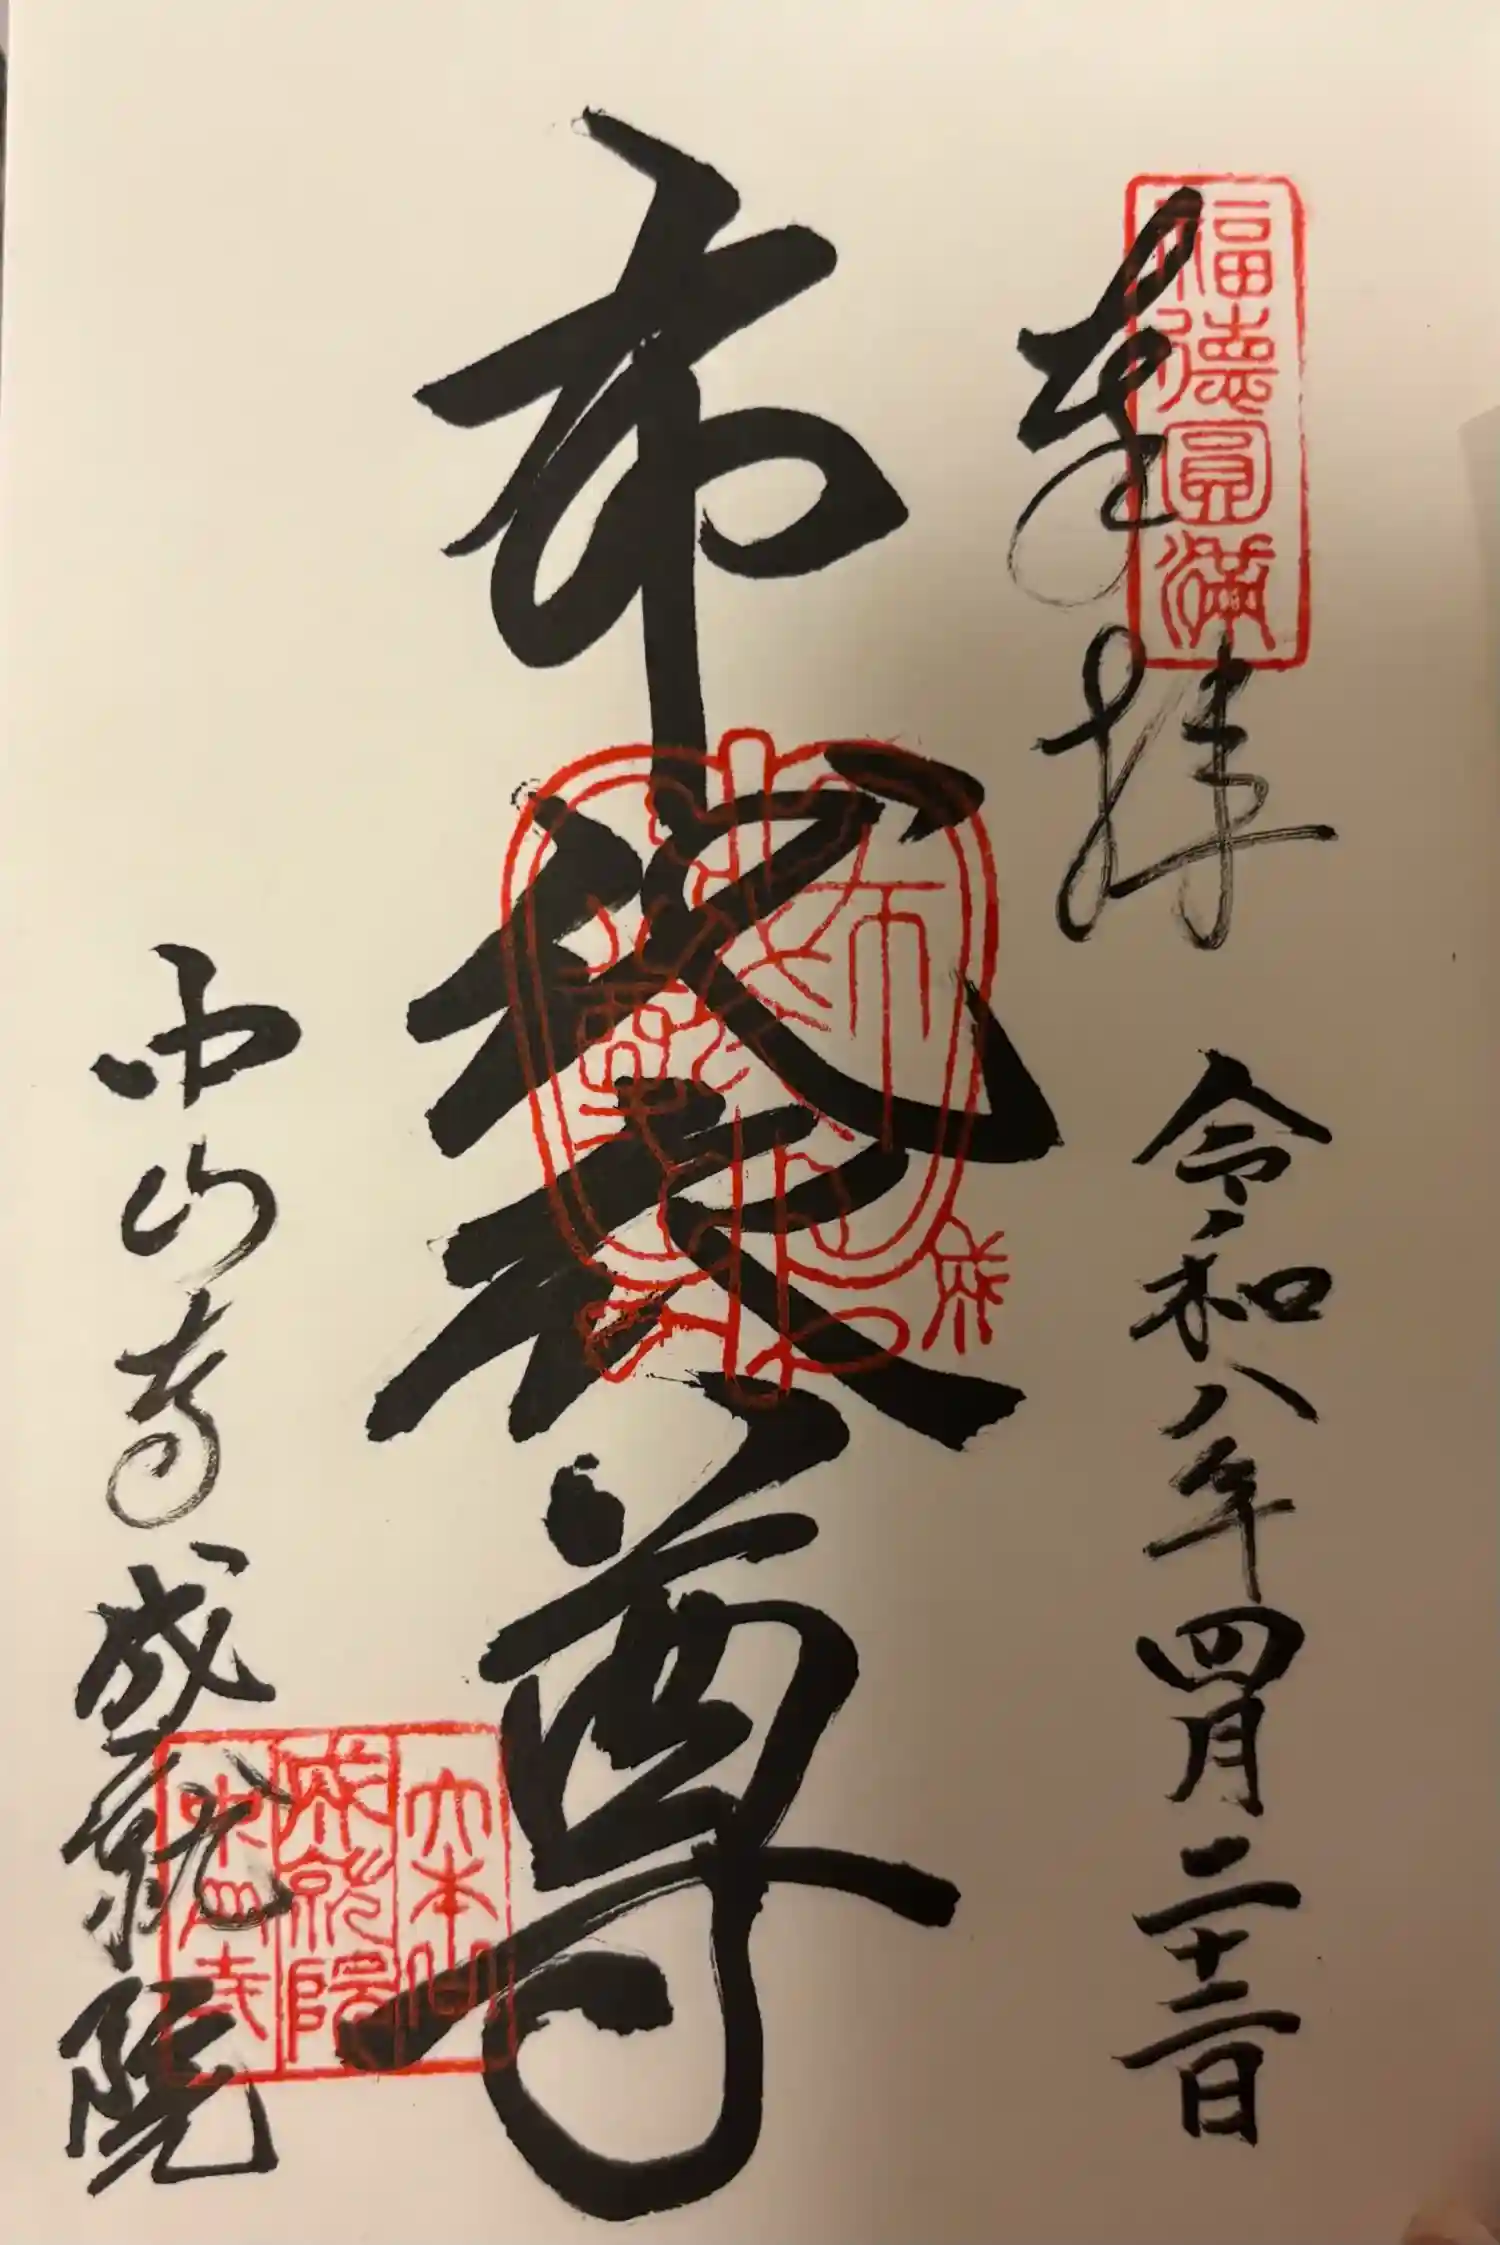 福徳圓満
奉拝
令和八年四月二十二日
布袋尊
布袋尊
中山寺成就院
大本山
成就院
中山寺